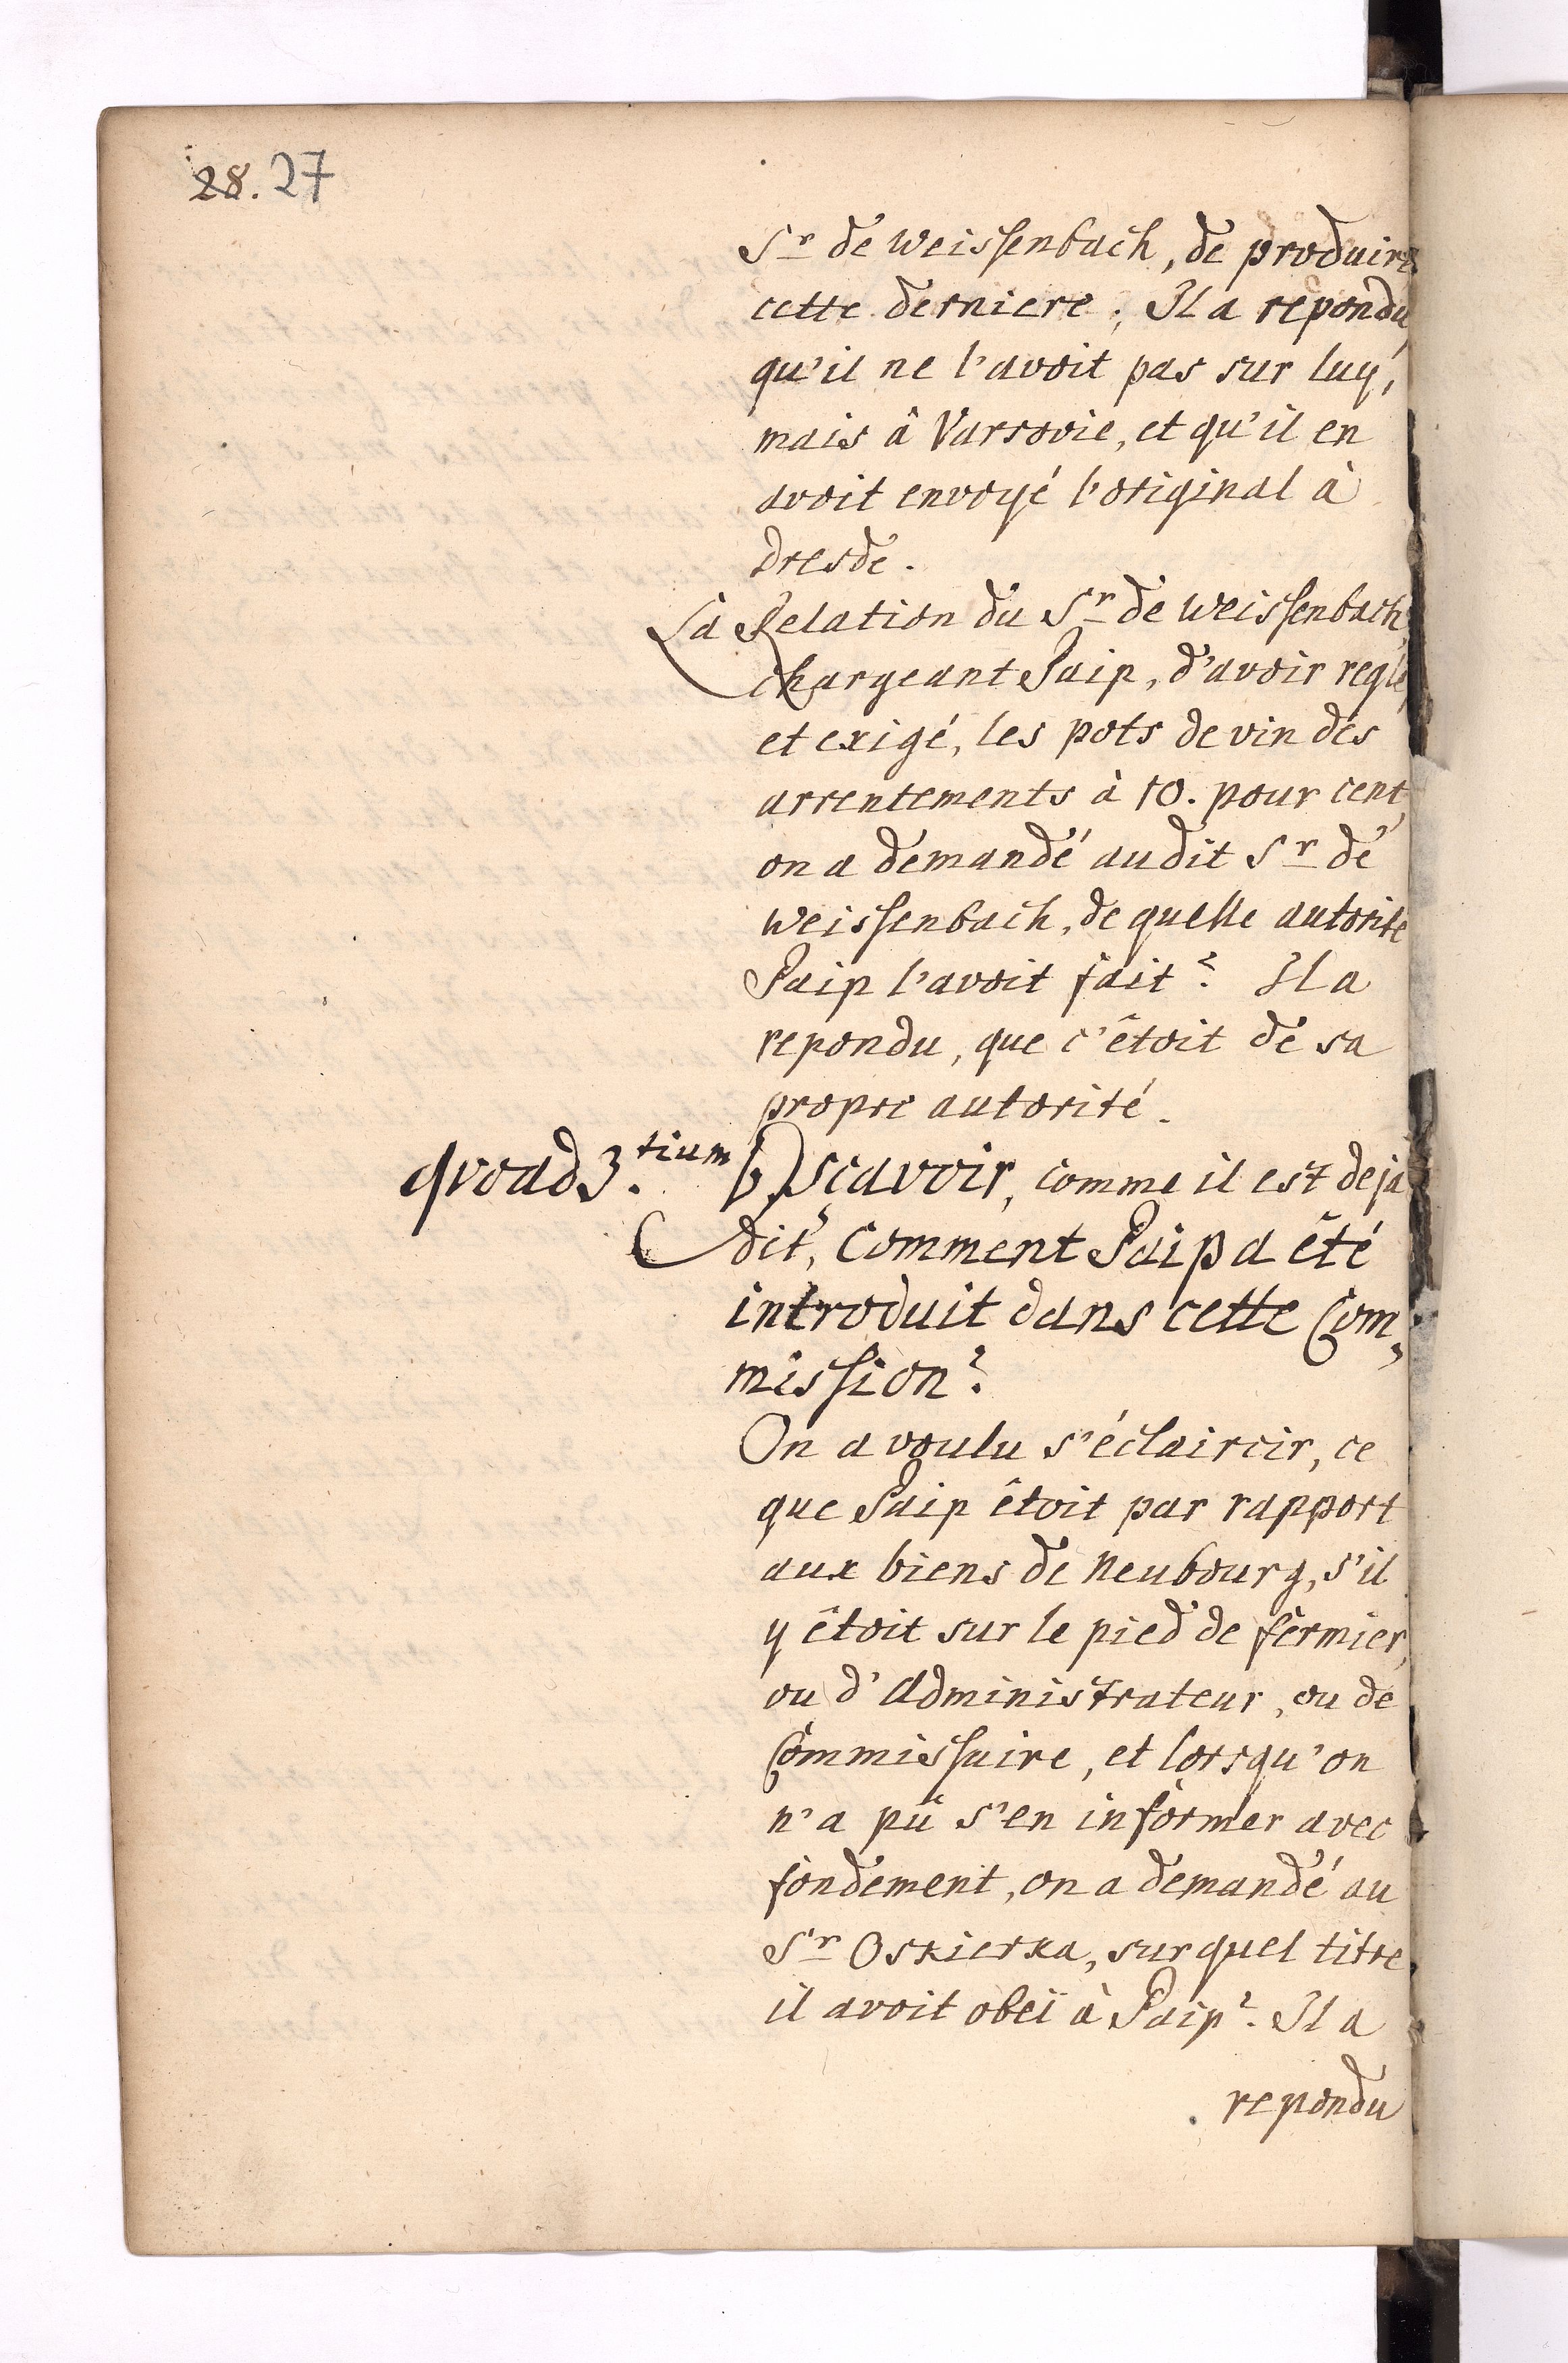 28. 27
Sr de Weissenbach, de produire
cette derniere; Il a repondu
qu'il ne l'avoit pas sur luy,
mais â Varsovie, et qu'il en
avoit envoyé l'original à
Dresde.
La Relation du Sr de Weissenbach,
chargeant Paip, d'avoir reglé,
et exigé, les pots de vin des
arrentements à 10. pour cent,
on a demandé audit Sr de
Weissenbach, de quelle autorité
Paip l'avoit fait? Il a
repondu, que c'étoit de sa
propre autorité.
quoad 3.tium b) sçavoir, comme il est deja
dit, Comment Paip a êté
introduit dans cette Com„
mission?
On a voulu s'éclaircir, ce
que Paip êtoit par rapport
aux biens de Neubourg, s'il
y êtoit sur le pied de fermier,
ou d'Administrateur, ou de
Commissaire, et lorsqu'on
n'a pû s'en informer avec
fondement, on a demandé au
Sr Oskierka, sur quel titre,
il avoit obeï à Paip? Il a
repondu